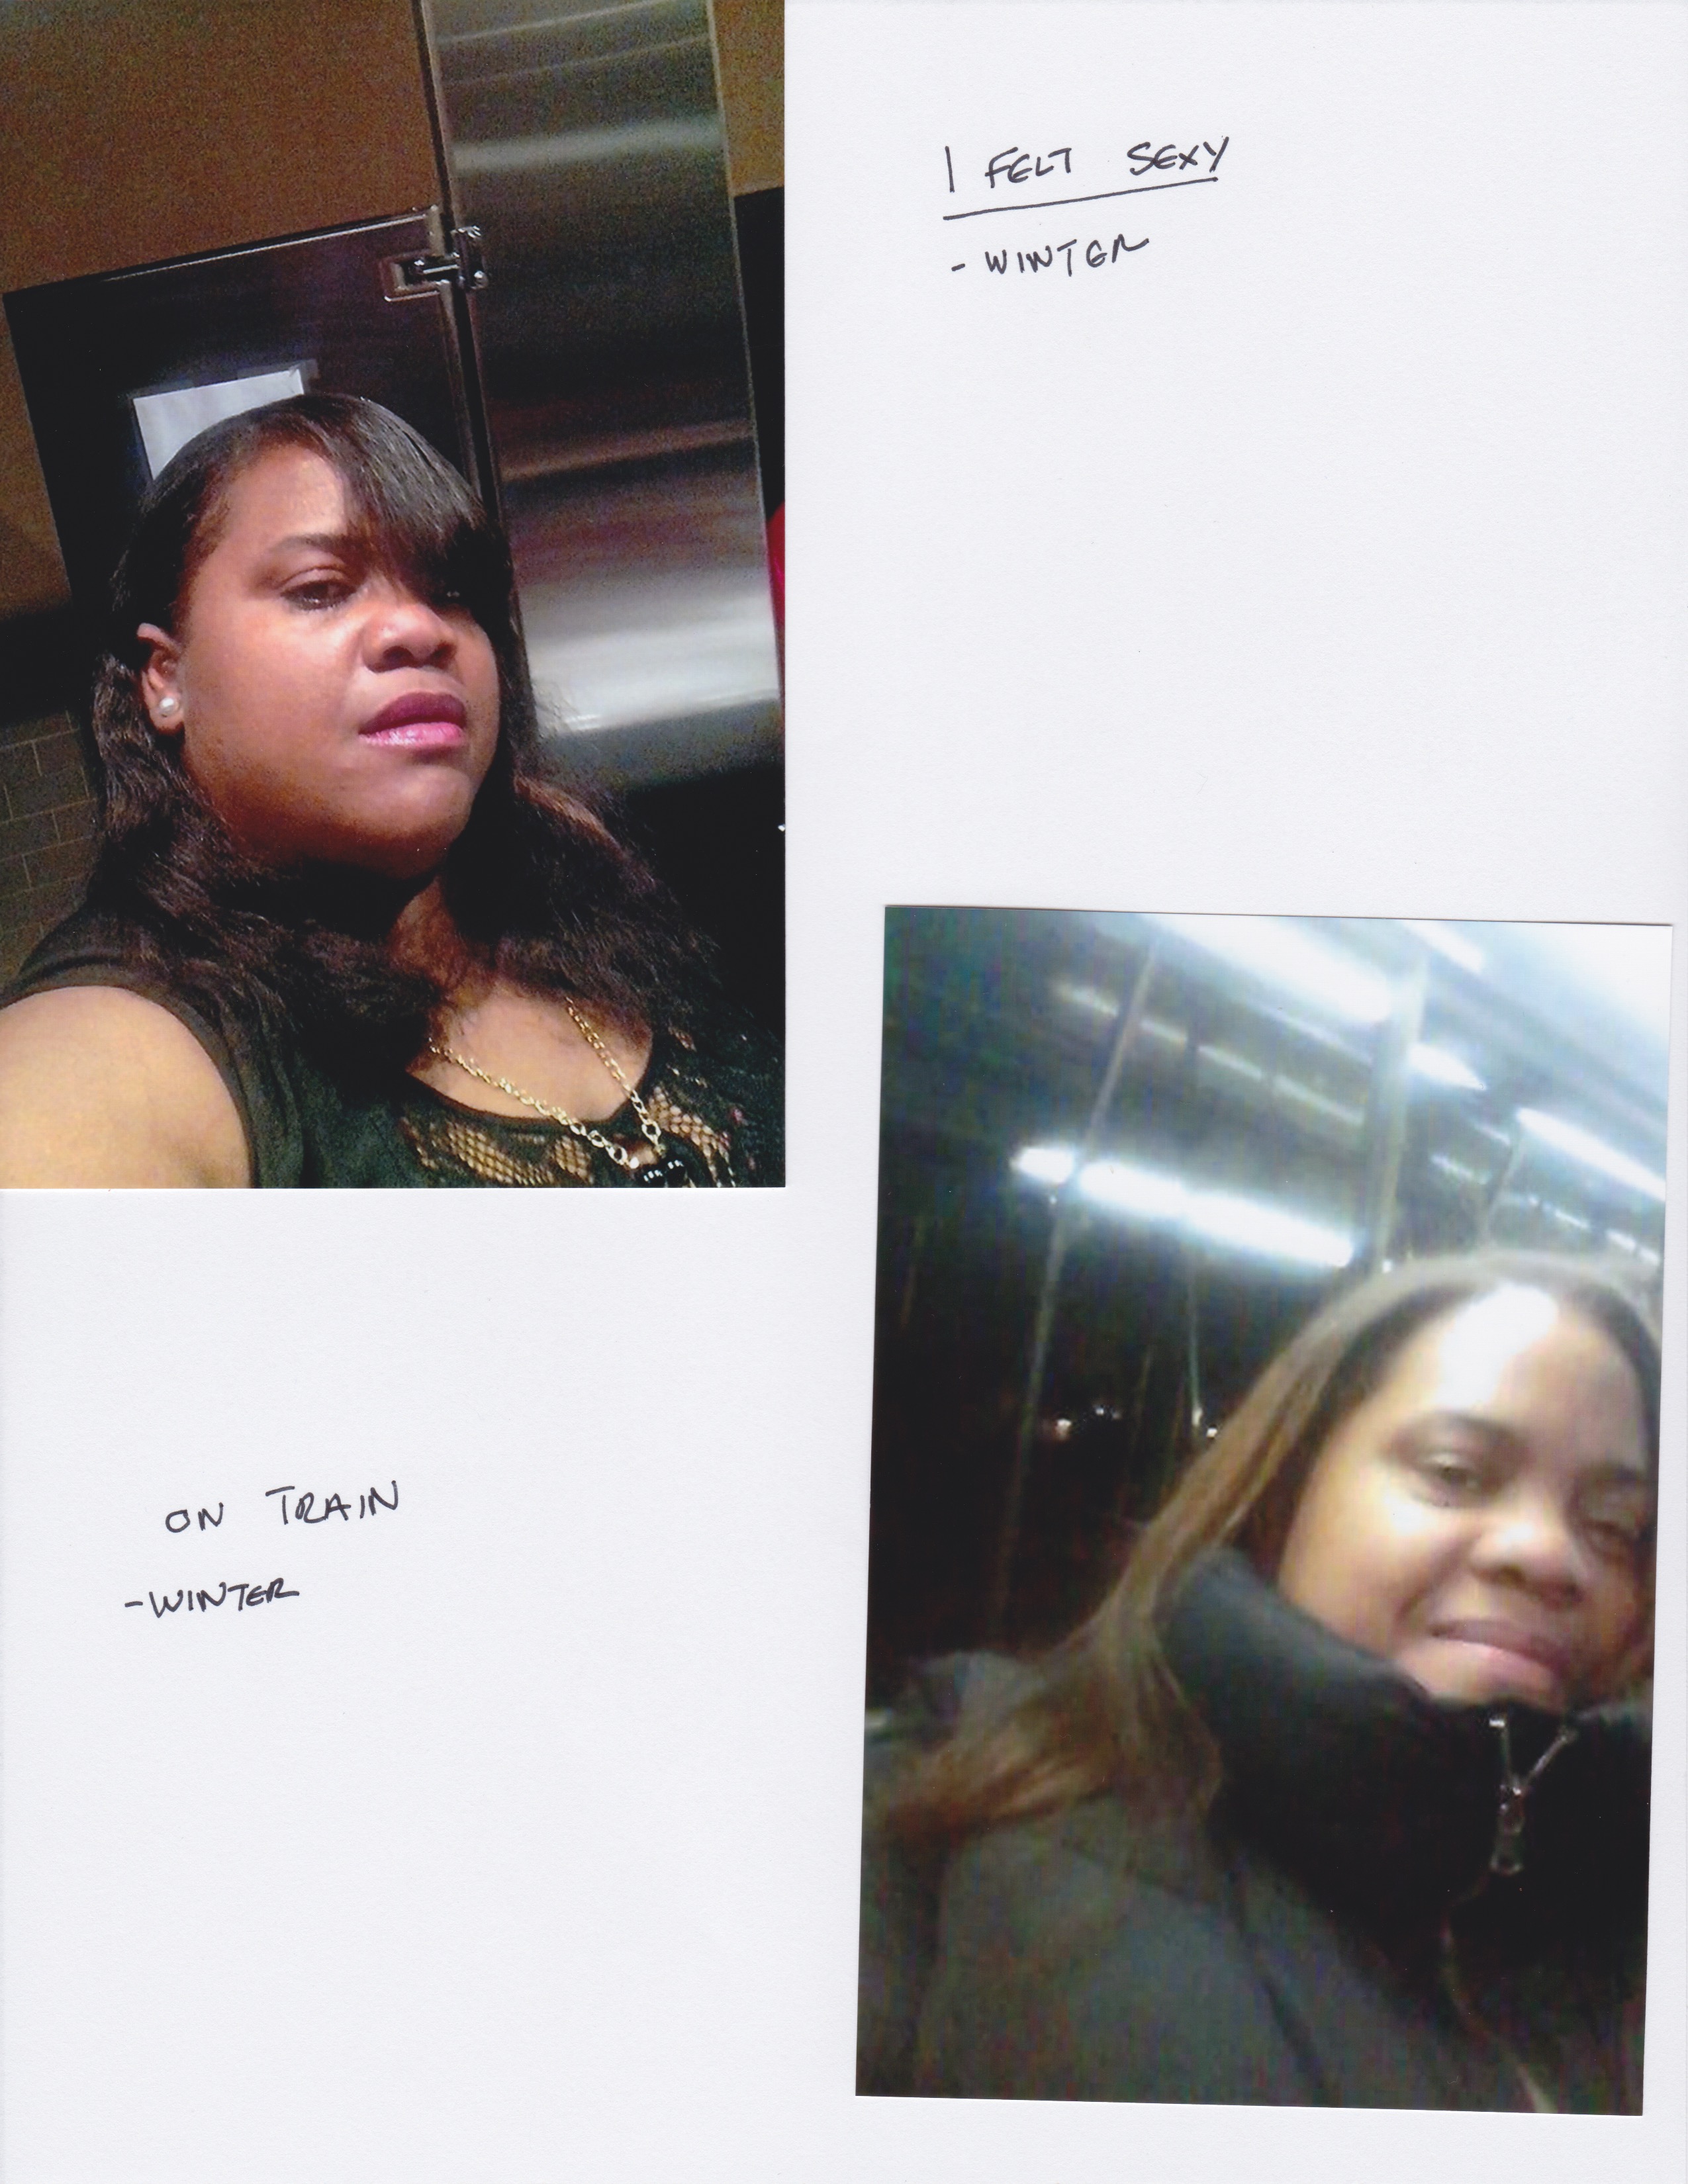 I FELT SEXY
- WINTER
ON TRAIN
- WINTER